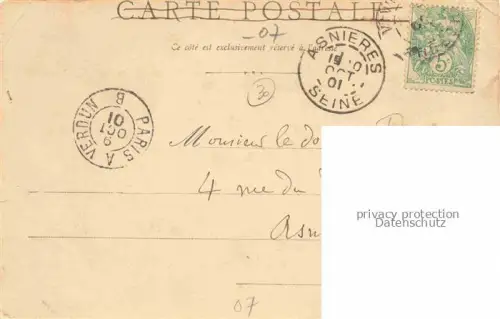 CARTE POSTALE
-07
Ce côté est exclusivement réservé à l'adresse
ASNIERES
OCT
01
SEINE
5
POSTES
30
PARIS A VERDUN B
9
OCT
01
Monsieur le do
4 rue du
Asn
privacy protection
Datenschutz
07